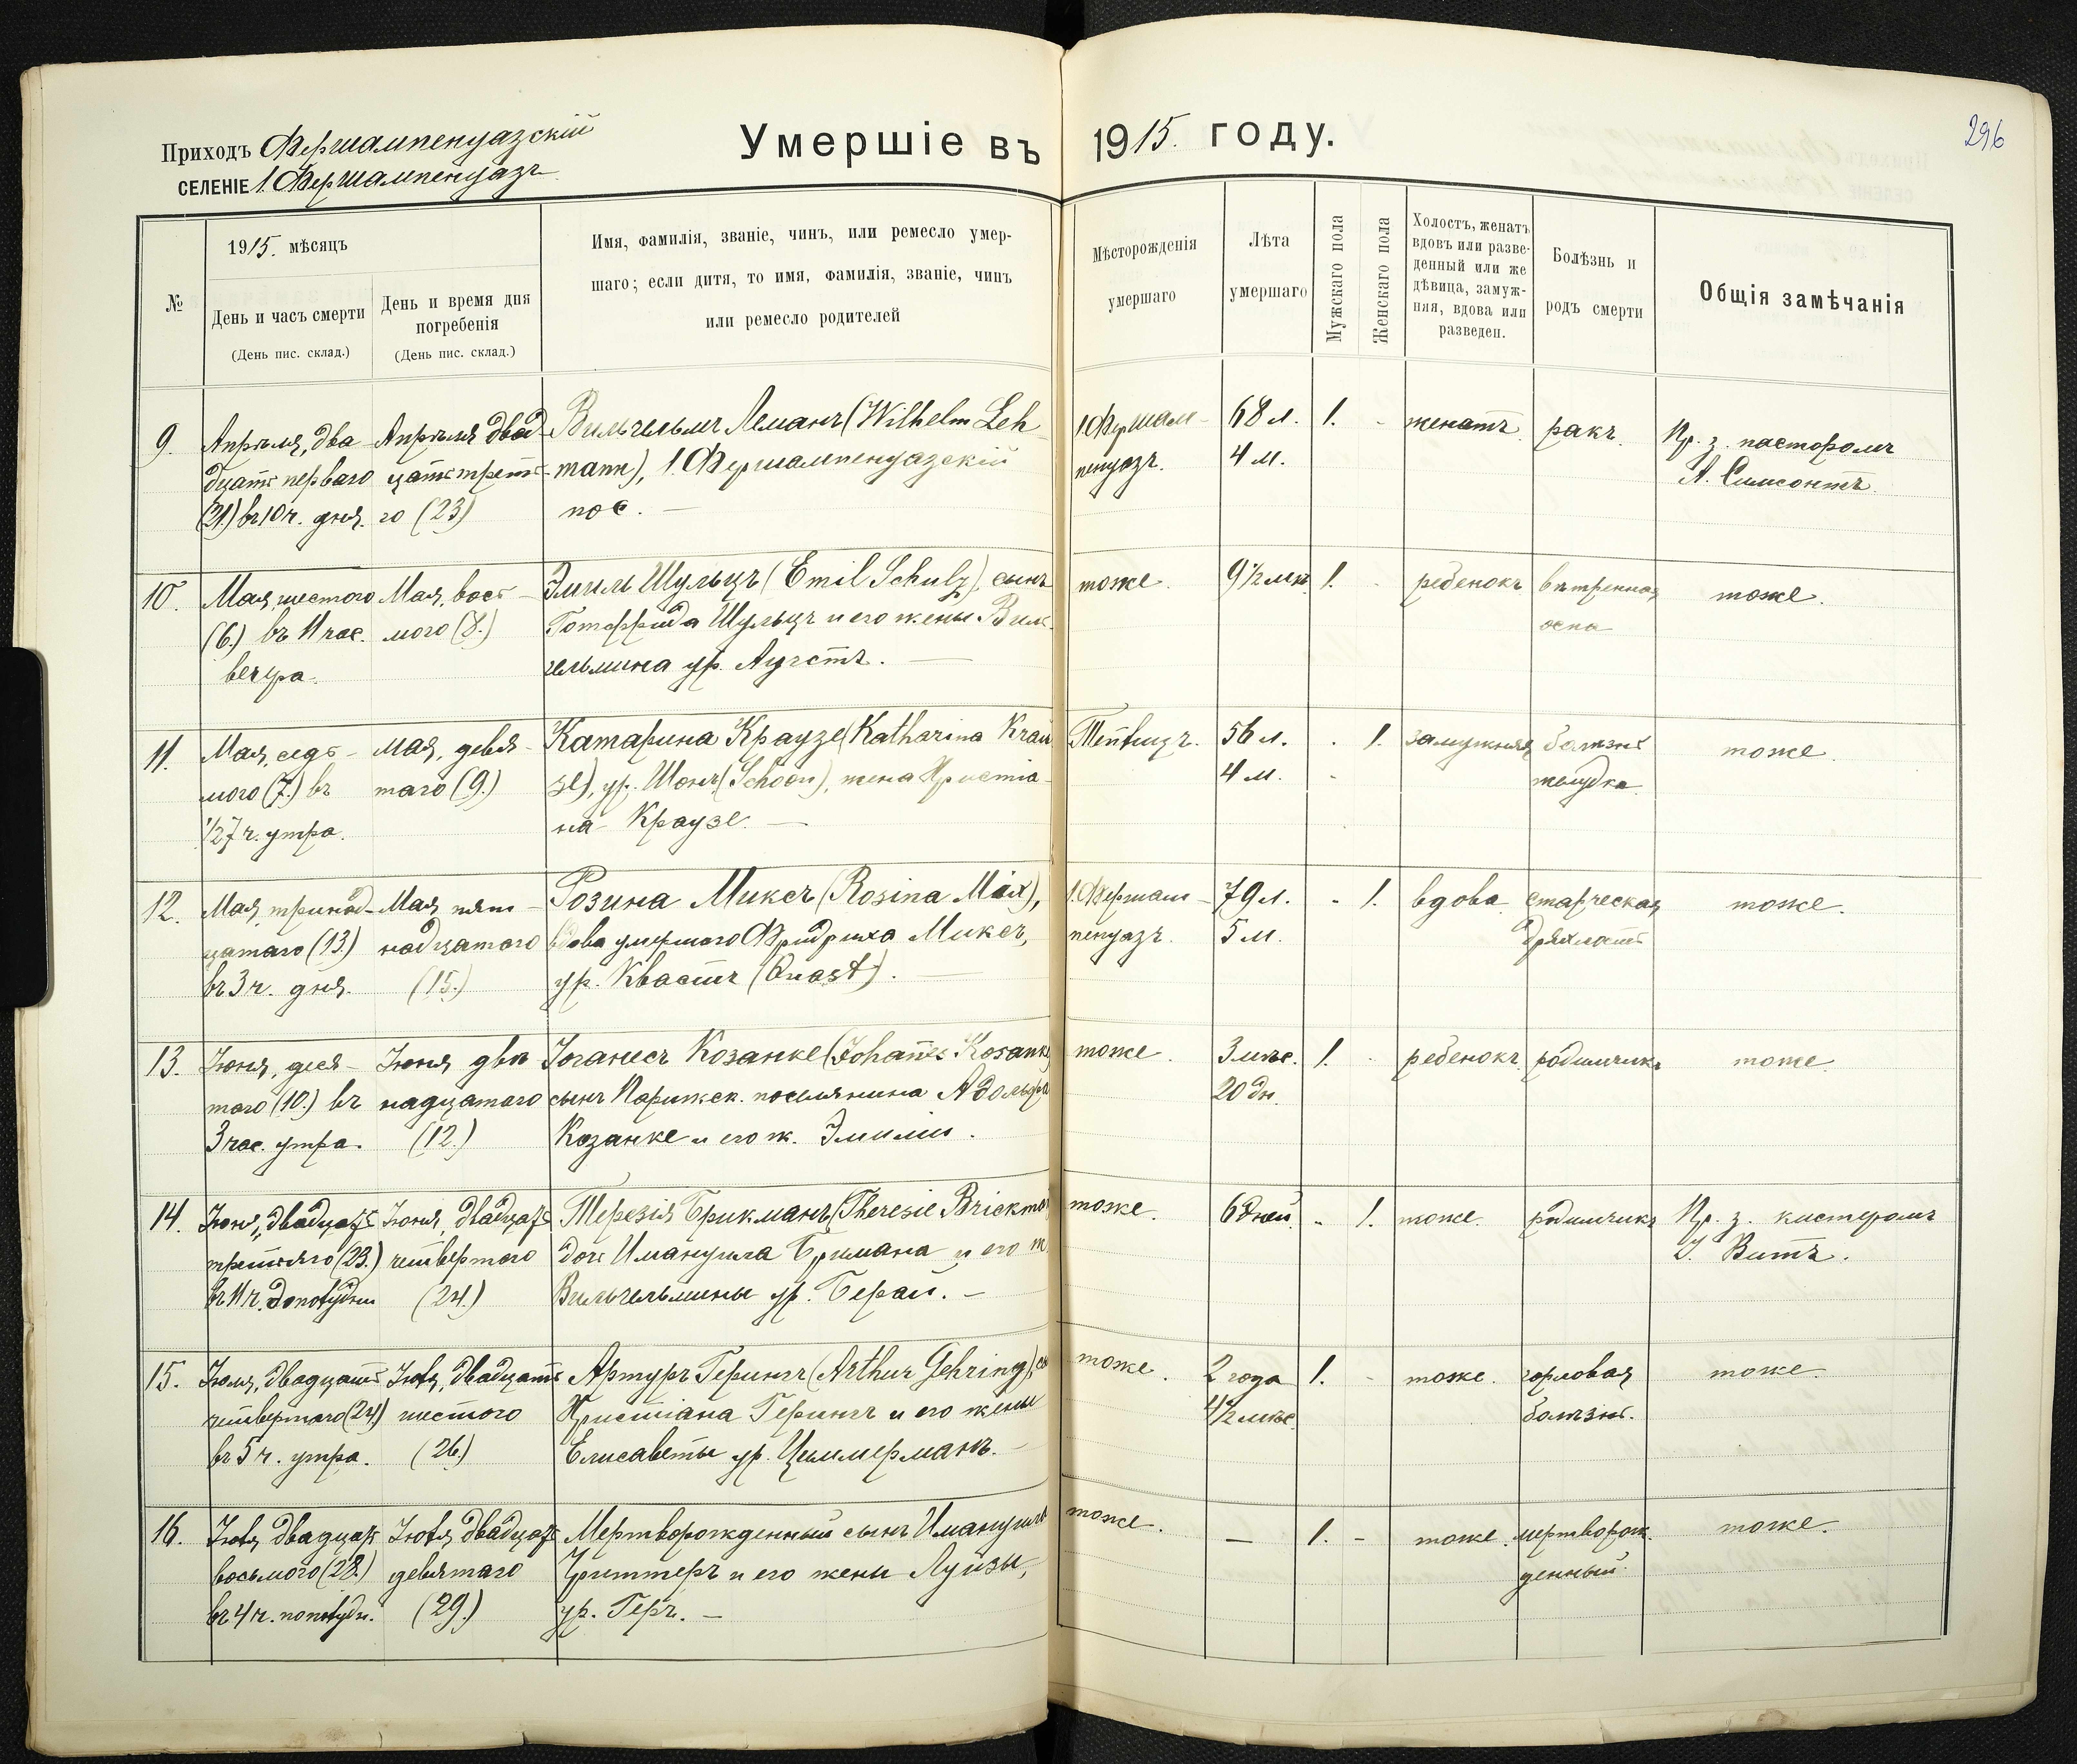 Приходъ Фершампенуазскій
СЕЛЕНІЕ 1. Фершампенуазъ
Умершіе въ 1915. году.
296
№
1915. мѣсяцъ
День и часъ смерти
(День пис. склад.)
День и время дня
погребенія
(День пис. склад.)
Имя, фамилія, званіе, чинъ, или ремесло умер-
шаго; если дитя, то имя, фамилія, званіе, чинъ
или ремесло родителей
Мѣсторожденія
умершаго
Лѣта
умершаго
Мужскаго пола
Женскаго пола
Холостъ, женатъ
вдовъ или разве-
денный или же
дѣвица, замуж-
няя, вдова или
разведен.
Болѣзнь и
родъ смерти
Общія замѣчанія
9.
Апрѣля, два
дцать перваго
(21) въ 10 ч. дня.
Апрѣля двад
цать третья-
го (23)
Вильгельмъ Леманъ (Wilhelm Leh
mann), 1. Фершампенуазскій
пос. —
1. Фершам-
пенуазъ.
68 л.
4 м.
1.
-
женатъ.
ракъ.
Пр. з. пасторомъ
А. Симсонтъ.
10.
Мая, шестого
(6.) въ 11 час.
вечера.
Мая, вось-
мого (8.)
Эмиль Шульцъ (Emil Schulz), сынъ
Готфрида Шульцъ и его жены Виль-
гельмина ур. Аугстъ. —
тоже.
9½ мѣс.
1.
-
ребенокъ
вѣтренная
оспа
тоже.
11.
Мая, седь-
мого (7.) въ
½7 ч. утра.
Мая, девя-
таго (9.)
Катарина Краузе (Katharina Krau
se), ур. Шонъ (Schoon), жена Христіа-
на Краузе. —
56 л.
4 м.
1.
замужняя
болѣзнь
желудка.
тоже.
12.
Мая, тринад-
цатаго (13.)
въ 3 ч. дня.
Мая, пят-
надцатаго
(15.)
Розина Миксъ (Rosina Mix),
вдова умершаго Фридриха Миксъ,
ур. Квастъ (Quast). —
1. Фершам-
пенуазъ.
79 л.
5 м.
-
1.
вдова
старческая
дряхлость
тоже.
13.
Іюня, деся-
таго (10.) въ
3 час. утра.
Іюня двѣ
надцатаго
(12.)
Іоганесъ Козанке (Johanes Kosanke
сынъ Парижск. поселянина Адольфа
Козанке и его ж. Эмиліи.
тоже.
3 мѣс.
20 дн.
1.
-
ребенокъ.
родимчикъ
тоже.
14.
Іюня, двадцать
третьяго (23.)
въ 11 ч. дополудни
Іюня, двадцать
четвертаго
(24.)
Терезія Брикманъ (Theresie Brickma
дочь Имануила Брикмана и его ж.
Вильгельмины ур. Берай. —
тоже.
6 дней.
-
1.
тоже.
родимчикъ
Пр. з. кистеромъ
І. Витъ.
15.
Іюля, двадцать
четвертаго (24.)
въ 5 ч. утра.
Іюля, двадцать
шестого
(26.)
Артуръ Герингъ (Arthur Gehring), сы
Христіана Герингъ и его жены
Елисаветы ур. Циммерманъ. —
тоже.
2 года
4½ мѣс.
1.
-
тоже.
горловая
болѣзнь.
тоже.
16.
Іюля двадцать
восьмого (28.)
въ 4 ч. пополудн.
Іюля двадцать
девятаго
(29.)
Мертворожденный сынъ Имануила
и его жены Луизы,
ур. Геръ. —
тоже.
—
1.
-
тоже.
мертворож-
денный.
тоже.